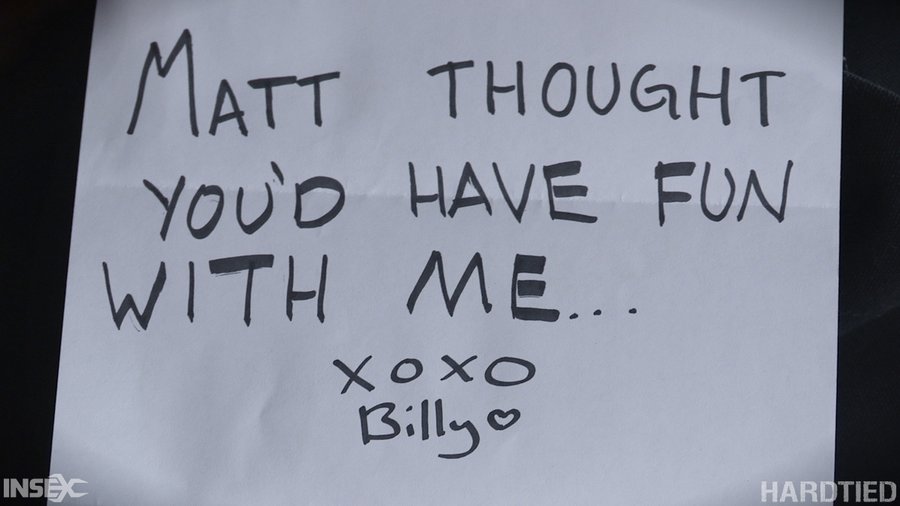 MATT THOUGHT
YOU'D HAVE FUN
WITH ME...
XOXO
Billy
INSEX
HARDTIED